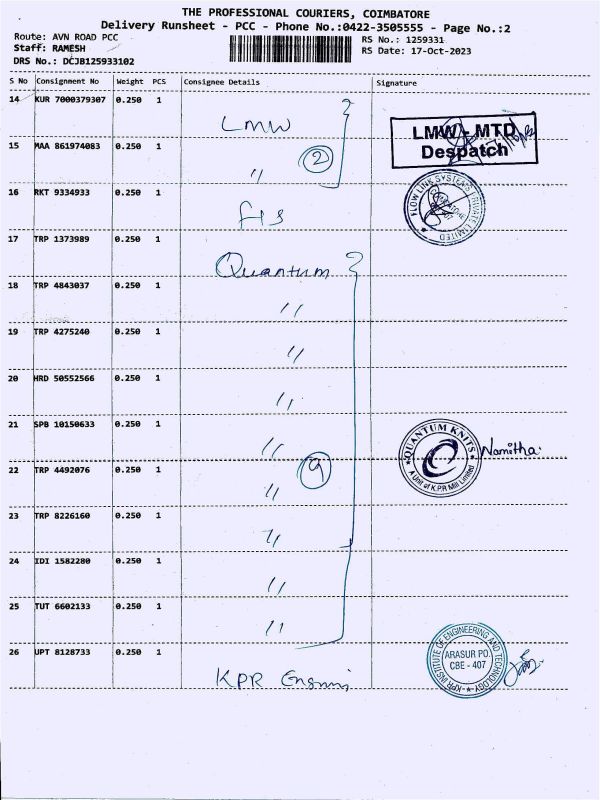 THE PROFESSIONAL COURIERS, COIMBATORE
Delivery Runsheet - PCC - Phone No.:0422-3505555 - Page No.:2
Route: AVN ROAD PCC
Staff: RAMESH
DRS No.: DCJB125933102
RS No.: 1259331
RS Date: 17-Oct-2023
S No Consignment No Weight PCS Consignee Details Signature
14 KUR 7000379307 0.250 1
LMW
LMW - MTD
Despatch
15 MAA 861974083 0.250 1
2
〃
16 RKT 9334933 0.250 1
FLS
FLOW LINK SYSTEMS PRIVATE LIMITED
17 TRP 1373989 0.250 1
Quantum
18 TRP 4843037 0.250 1
〃
19 TRP 4275240 0.250 1
〃
20 HRD 50552566 0.250 1
〃
21 SPB 10150633 0.250 1
〃
QUANTUM KNITS
A Unit of K.P.R Mill Limited
Namitha.
22 TRP 4492076 0.250 1
9
〃
23 TRP 8226160 0.250 1
〃
24 IDI 1582280 0.250 1
〃
25 TUT 6602133 0.250 1
〃
26 UPT 8128733 0.250 1
KPR
KPR INSTITUTE OF ENGINEERING AND TECHNOLOGY
ARASUR PO.
CBE - 407